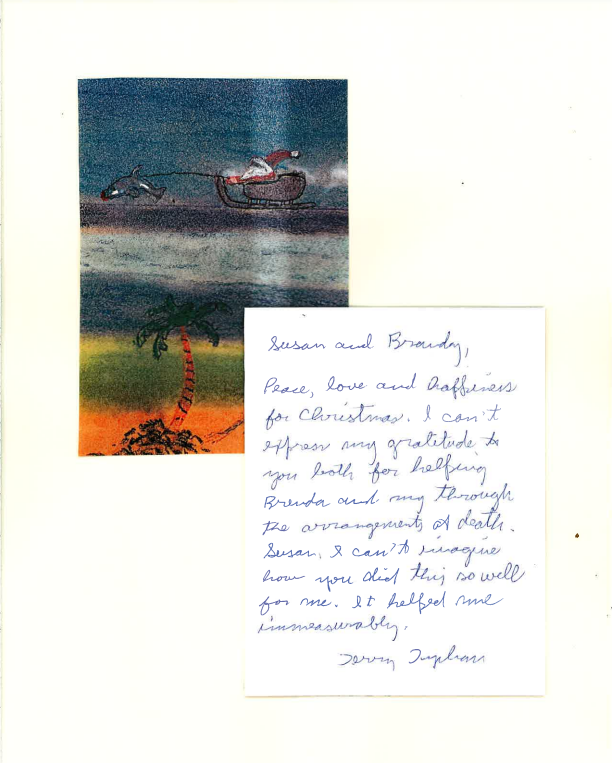 Susan and Brandy,
Peace, love and happiness
for Christmas. I can't
express my gratitude to
you both for helping
Brenda and my through
the arrangements of death.
Susan, I can't imagine
how you did this so well
for me. It helped me
immeasurably.
Terry